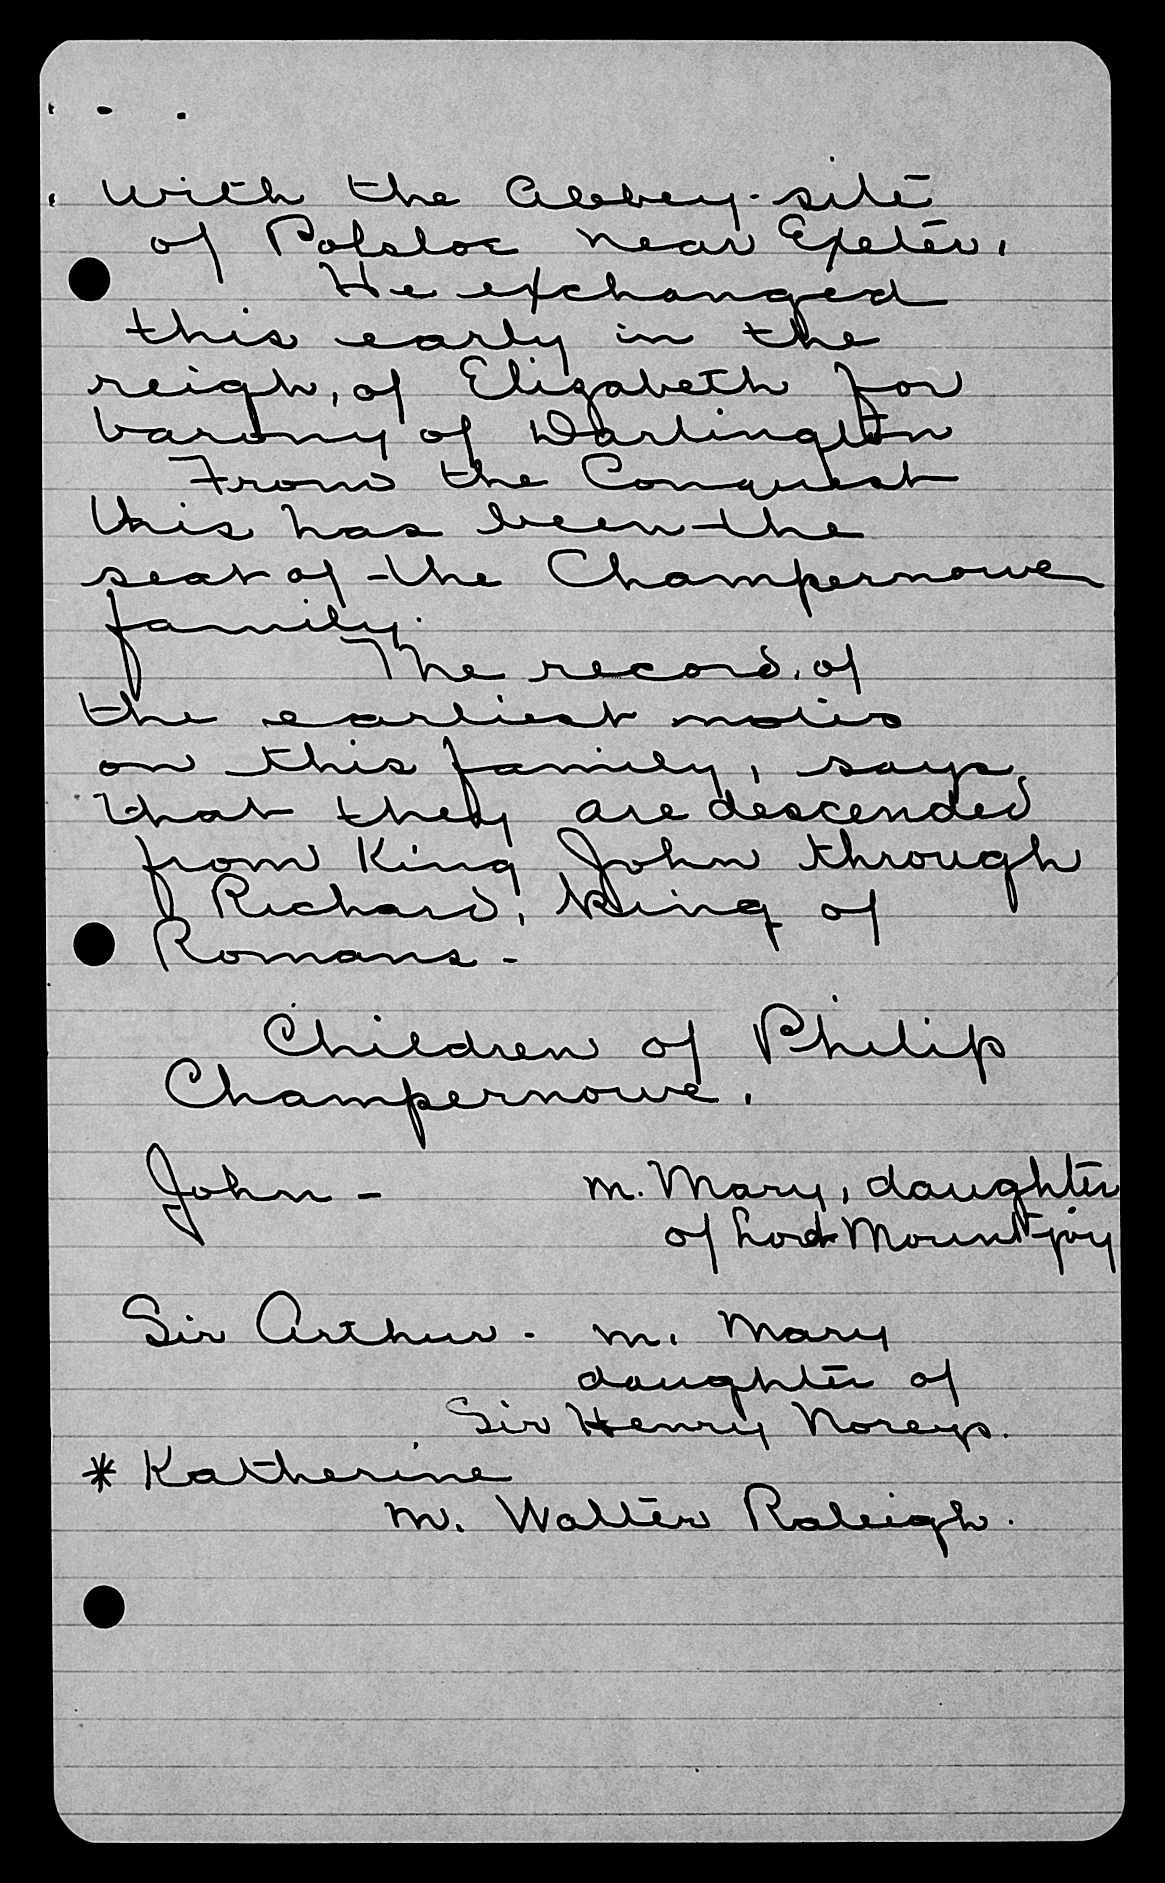 with the Abbey-site
of Polsloe near Exeter.
He exchanged
this early in the
reigh, of Elizabeth for
barony of Darlington
From the Conquest
this has been the
seat of the Champernowe
family.
The record, of
the earliest
on this family, says
that they are descended
from King John through
Richard, King of
Romans -
Children of Philip
Champernowe.
John - m. Mary, daughter
of Lord Mountjoy
Sir Arthur - m. Mary
daughter of
Sir Henry Noreys.
* Katherine
m. Walter Raleigh.